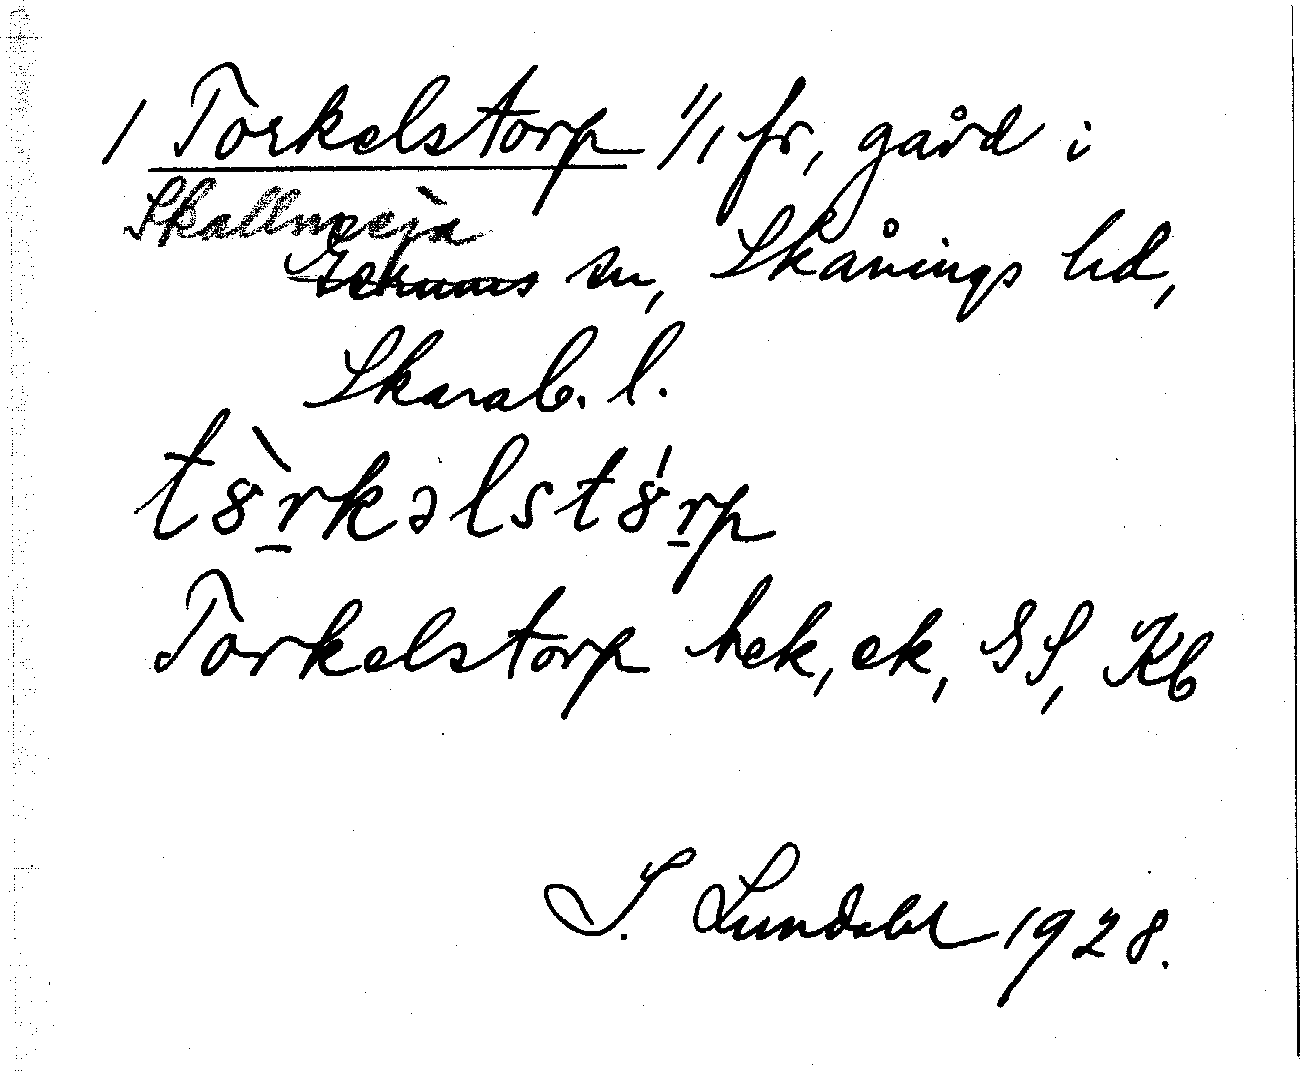 / Torkelstorp 1/1 fr, gård i
Skallmeja
sn, Skånings hd,
Skarab. l.
t8̀rkəlst8́rp
Torkelstorp hek, ek, GS, Kb
I. Lundahl 1928.